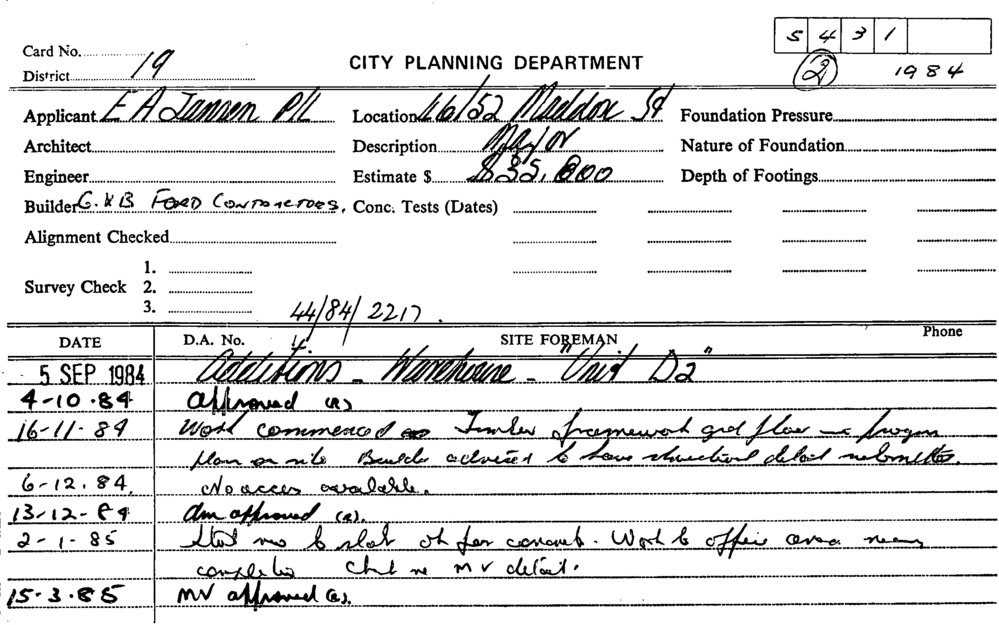 5 4 3 1
Card No.
19
2
1984
District
CITY PLANNING DEPARTMENT
Applicant E A Jansen P/L Location 46/52 Maddox St Foundation Pressure
Architect Description Major Nature of Foundation
Engineer Estimate $ $35,000 Depth of Footings
Builder G. & B FORD CONTRACTORS. Conc. Tests (Dates)
Alignment Checked
1.
Survey Check 2.
3.
44/84/2217.
DATE D.A. No. SITE FOREMAN Phone
5 SEP 1984 Additions - Warehouse - "Unit D2"
4-10-84 Approved (R)
16-11-84 Work commenced Timber framework grd floor in progress
plan on site Builder advised to have structural detail submitted.
6-12.84. No access available.
13-12-84 Am approved (R).
2-1-85 Steel to slab ok for concrete. Work to office area nearing
completion Check re MV detail.
15.3.85 MV approved (R).